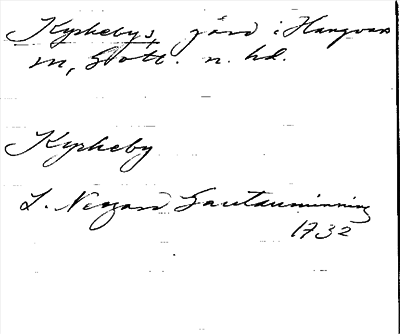 Kyrkebys, gård i Hangvars
sn, Gotl. n. hd.
Kyrkeby
L. Neogard Gautauminning
1732